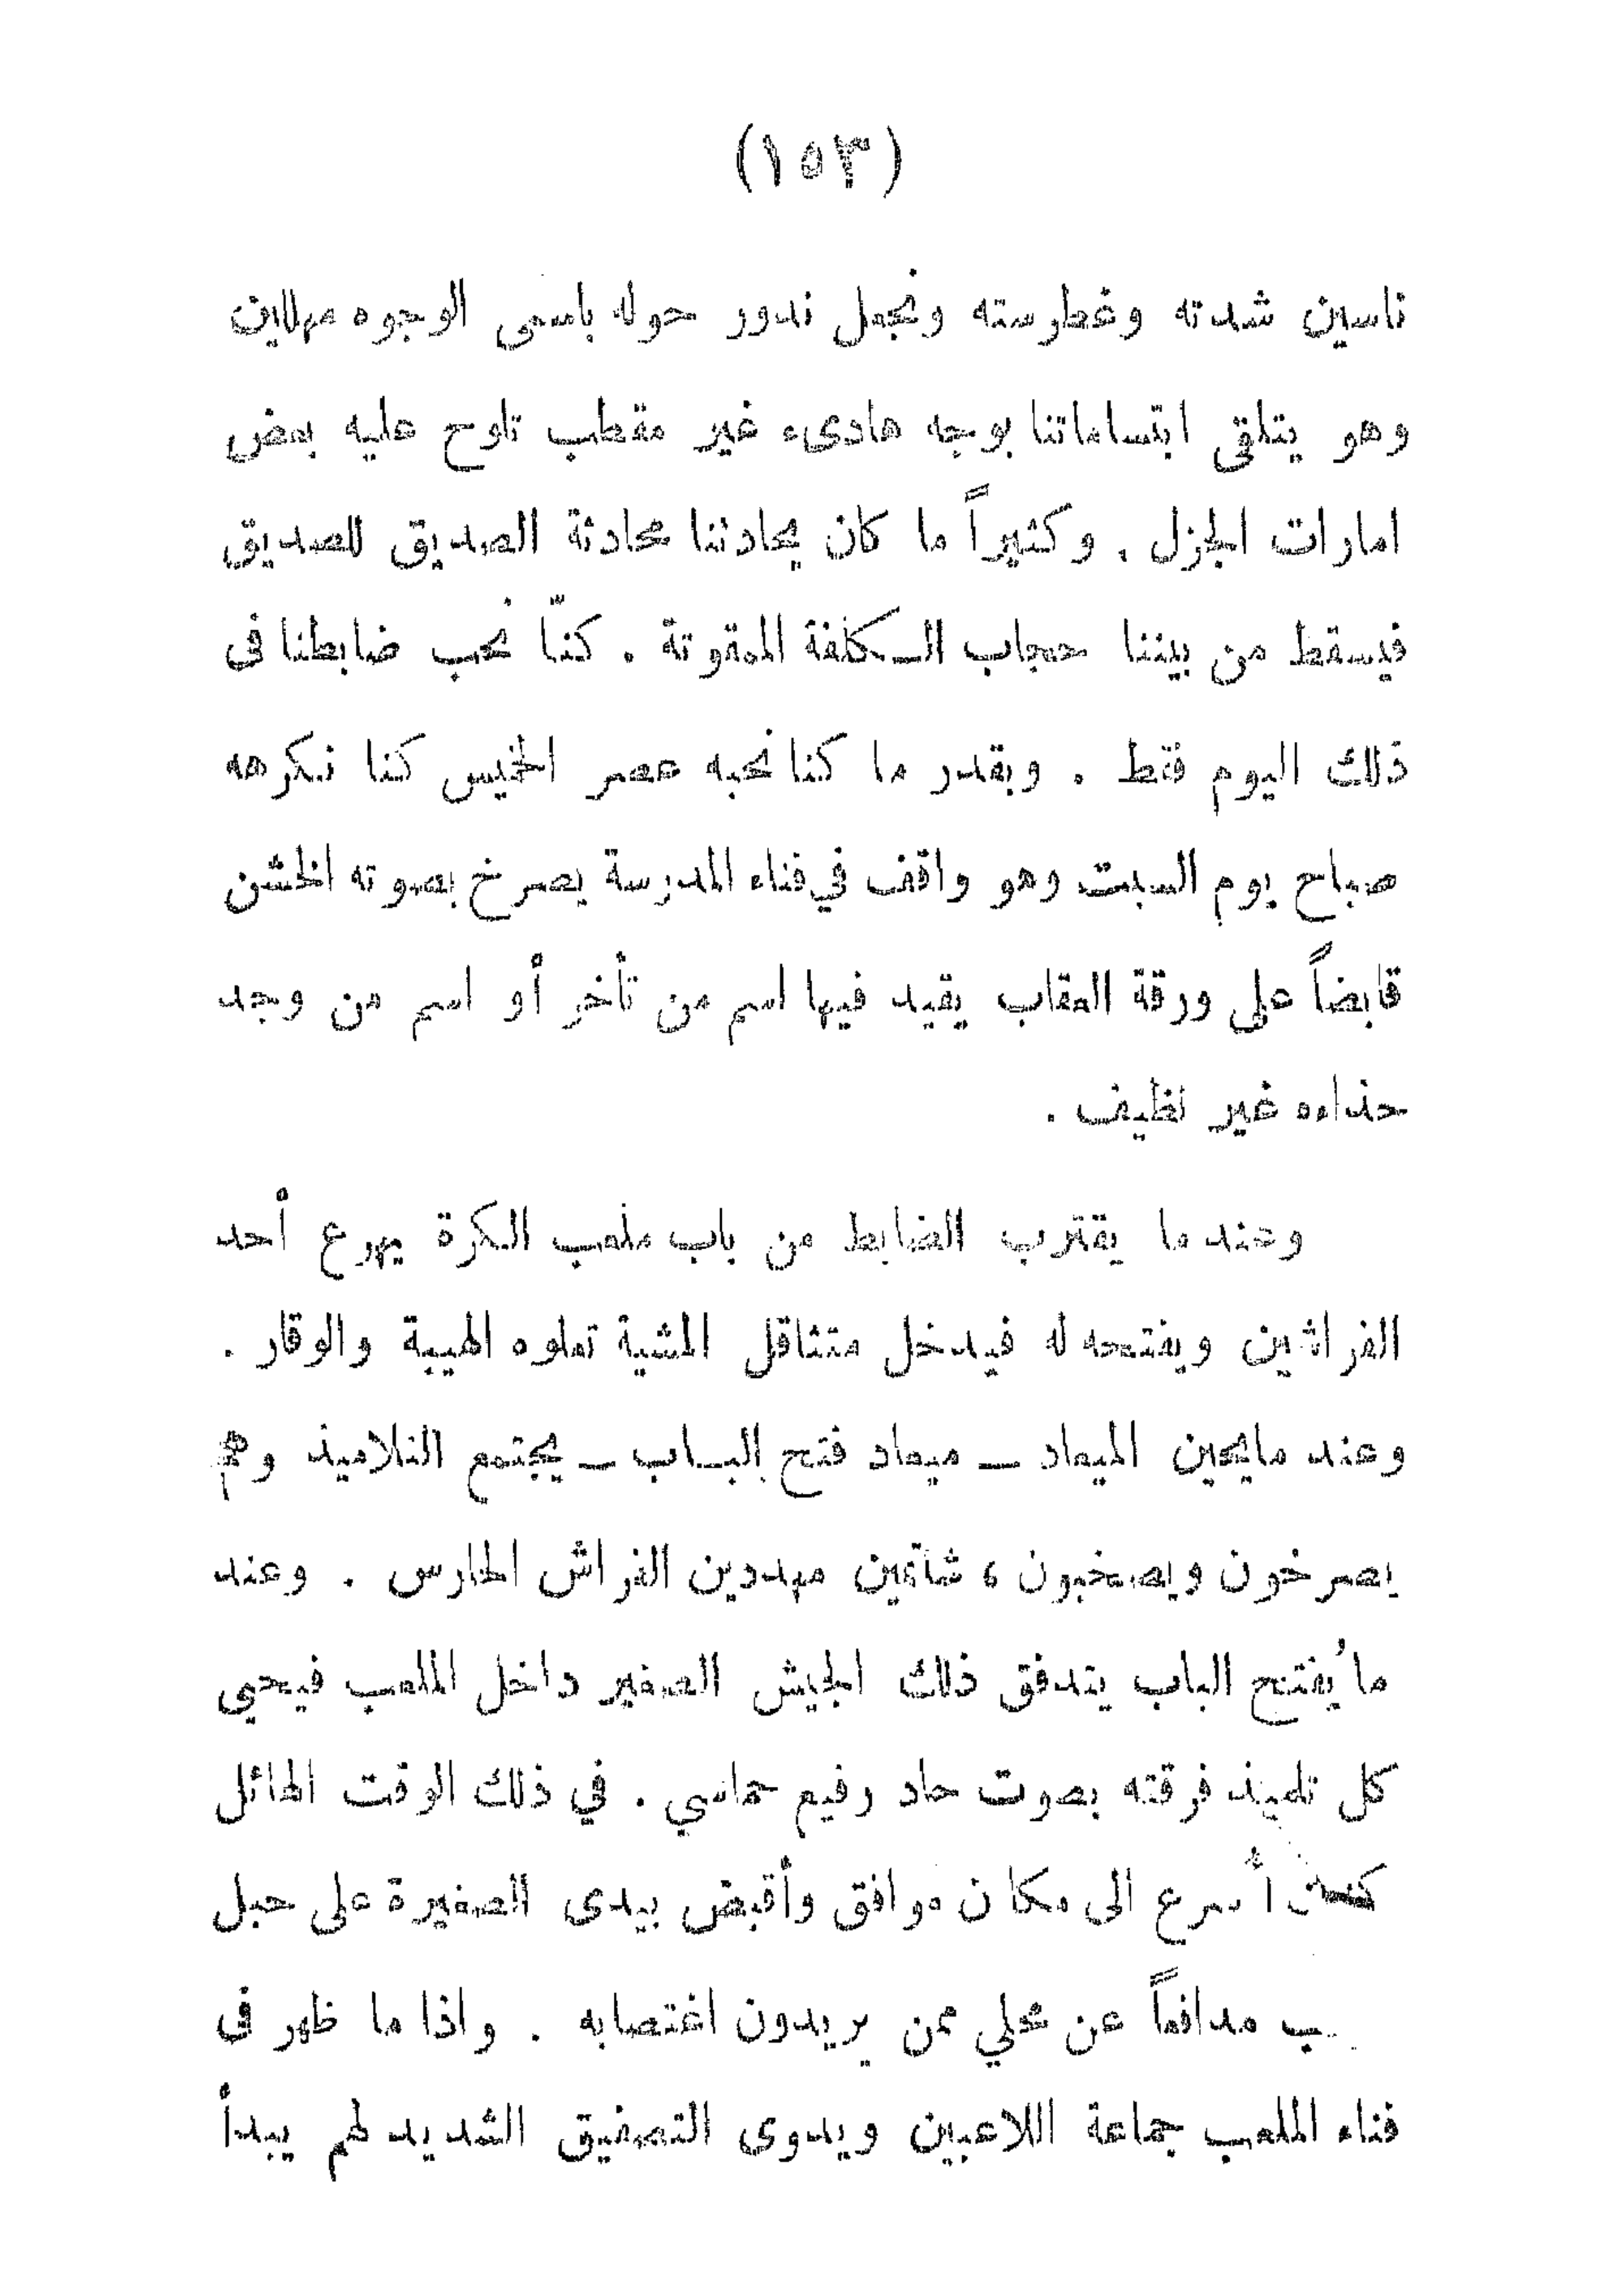 (١٥٣)
ناسين شدته وغطرسته ونجعل ندور حوله باسمى الوجوه مهللين
وهو يتلقى ابتساماتنا بوجه هادىء غير مقطب تلوح عليه بعض
امارات الجزل . وكثيراً ما كان يحادثنا محادثة الصديق للصديق
فيسقط من بيننا حجاب الكلفة الممقوتة . كنّا نحب ضابطنا فى
ذلك اليوم فقط . وبقدر ما كنا نحبه عصر الخميس كنا نكرهه
صباح يوم السبت وهو واقف في فناء المدرسة يصرخ بصوته الخشن
قابضاً على ورقة العقاب يقيد فيها اسم من تأخر أو اسم من وجد
حذاءه غير نظيف .
وعند ما يقترب الضابط من باب ملعب الكرة يهرع أحد
الفراشين ويفتحه له فيدخل متثاقل المشية تعلوه الهيبة والوقار .
وعند مايحين الميعاد — ميعاد فتح الباب — يجتمع التلاميذ وهم
يصرخون ويصخبون ، شاتمين مهددين الفراش الحارس . وعند
ما يُفتح الباب يتدفق ذلك الجيش الصغير داخل الملعب فيحيى
كل تلميذ فرقته بصوت حاد رفيع حماسي . في ذلك الوقت الهائل
كنت أسرع الى مكان موافق وأقبض بيدى الصغيرة على حبل
مدافعاً عن محلي ممن يريدون اغتصابه . واذا ما ظهر فى
فناء الملعب جماعة اللاعبين ويدوى التصفيق الشديد لهم يبدأ